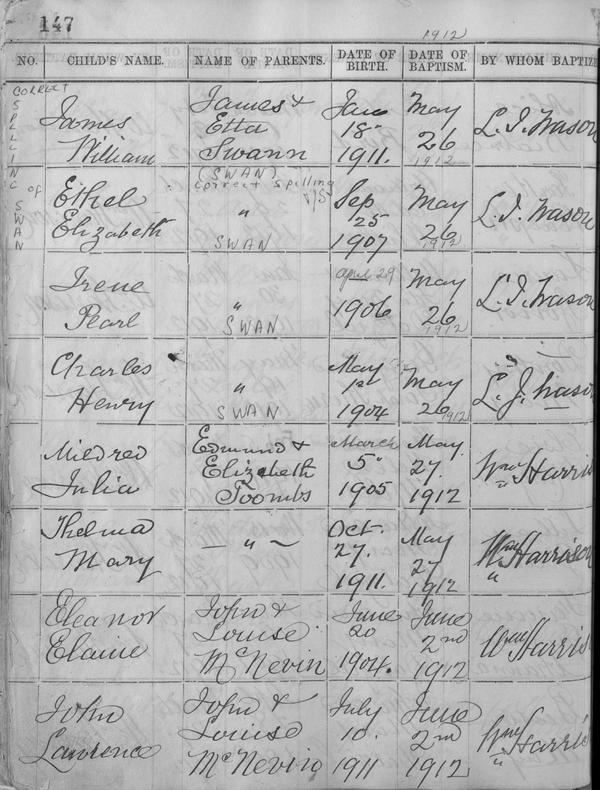 147
1912
NO. CHILD'S NAME. NAME OF PARENTS. DATE OF BIRTH. DATE OF BAPTISM. BY WHOM BAPTIZE
CORRECT SPELLING of SWAN
James James & Jan May
Etta 18" 26 L. J. Wason
William Swann 1911. 1912
(SWAN)
correct spelling
Ethel " Sep May
25 26 L. J. Wason
Elizabeth SWAN 1907 1912
Irene april 29 May
" 1906 26 L. J. Wason
Pearl SWAN 1912
Charles May May
" 1st L. J. Wason
Henry SWAN 1904 26 1912
Mildred Edmund & March May.
Elizabeth 5" 27. Wm Harris
Julia Toombs 1905 1912
Thelma Oct. May
— " ~ 27. 27 Wm Harrison
Mary 1911. 1912 "
Eleanor John & June June
Louise 20 2nd Wm Harris
Elaine McNevin 1904. 1912
John John & July June
Louise 10. 2nd Wm Harris
Lawrence McNevin 1911 1912 "